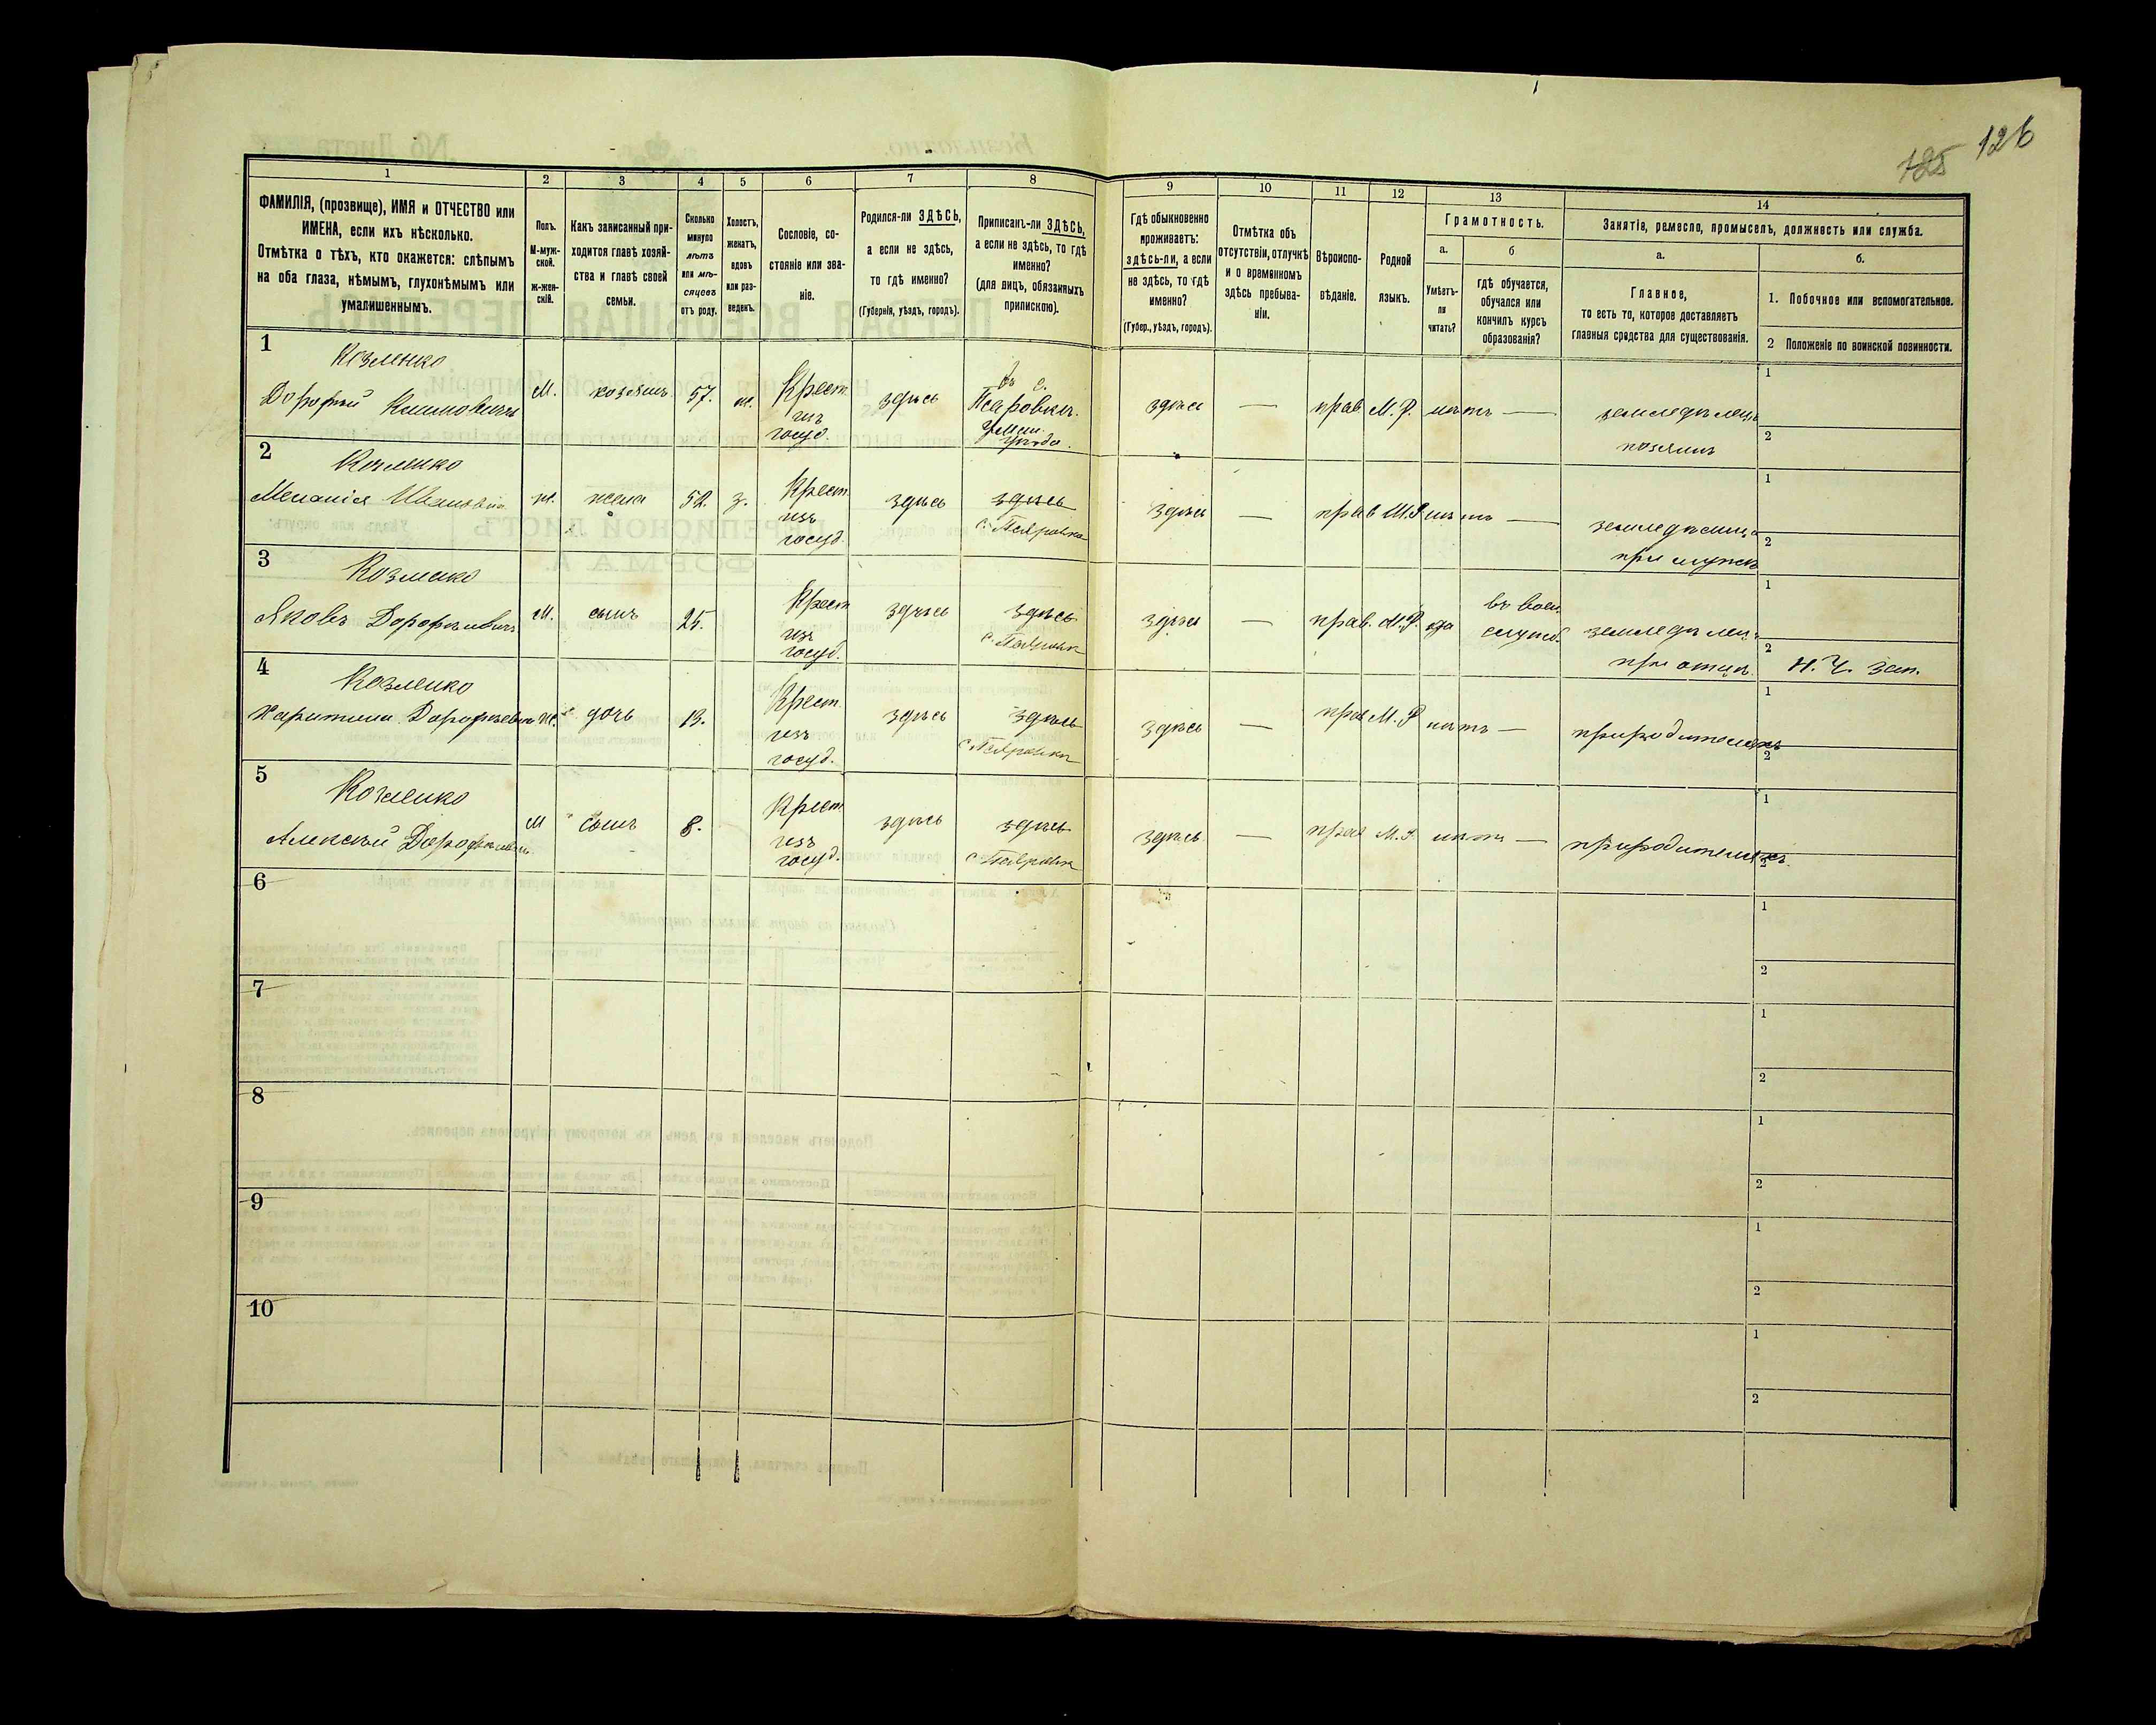 126
125
1
2
3
4
5
6
7
8
9
10
11
12
13
14
ФАМИЛІЯ, (прозвище), ИМЯ и ОТЧЕСТВО или
ИМЕНА, если ихъ нѣсколько.
Отмѣтка о тѣхъ, кто окажется: слѣпымъ
на оба глаза, нѣмымъ, глухонѣмымъ или
умалишеннымъ.
Полъ.
М-муж-
ской.
ж-жен-
скій.
Какъ записанный при-
ходится главѣ хозяй-
ства и главѣ своей
семьи.
Сколько
минуло
лѣтъ
или мѣ-
сяцевъ
отъ роду.
Холостъ,
женатъ,
вдовъ
или раз-
веденъ.
Сословіе, со-
стояніе или зва-
ніе.
Родился-ли ЗДѢСЬ,
а если не здѣсь,
то гдѣ именно?
(Губернія, уѣздъ, городъ).
Приписанъ-ли ЗДѢСЬ,
а если не здѣсь, то гдѣ
именно?
(для лицъ, обязанныхъ
припискою).
Гдѣ обыкновенно
проживаетъ:
здѣсь-ли, а если
не здѣсь, то гдѣ
именно?
(Губер., уѣздъ, городъ).
Отмѣтка объ
отсутствіи, отлучкѣ
и о временномъ
здѣсь пребыва-
ніи.
Вѣроиспо-
вѣданіе.
Родной
языкъ.
Грамотность.
а.
Умѣетъ-
ли
читать?
б
гдѣ обучается,
обучался или
кончилъ курсъ
образованія?
Занятіе, ремесло, промыселъ, должность или служба.
а.
Главное,
то есть то, которое доставляетъ
главныя средства для существованія.
б.
1. Побочное или вспомогательное.
2 Положеніе по воинской повинности.
1
Козленко
Дорофей Климовичъ
М.
хозяинъ
57.
ж.
Крест.
изъ
госуд.
здѣсь
въ с.
Псаровкѣ.
Уман.
уѣзда.
здѣсь
—
прав
М. Р.
нѣтъ
—
земледѣлецъ
хозяинъ
1
2
2
Козленко
Меланія Ивановна
ж.
жена
52.
з.
Крест.
изъ
госуд.
здѣсь
здѣсь
с. Псаровка
здѣсь
—
прав
М. Р.
нѣтъ
—
земледѣлица
при мужѣ
1
2
3
Козленко
Яковъ Дорофѣевичъ
М.
сынъ
25.
Крест
изъ
госуд.
здѣсь
здѣсь
здѣсь
—
прав.
М. Р.
да
въ воен.
служб.
земледѣлец
при отцѣ.
1
2
Н. Ч. зап.
4
Козленко
Харитина Дорофѣевна
ж.
дочь
13.
Крест.
изъ
госуд.
здѣсь
здѣсь
здѣсь
—
прав
М. Р
нѣтъ
—
при родителяхъ
1
2
5
Козленко
Алексѣй Дорофѣевичъ
М
сынъ
8.
Крест
изъ
госуд.
здѣсь
здѣсь
здѣсь
—
прав
М. Р.
нѣтъ
—
при родителяхъ.
1
2
6
1
2
7
1
2
8
1
2
9
1
2
10
1
2